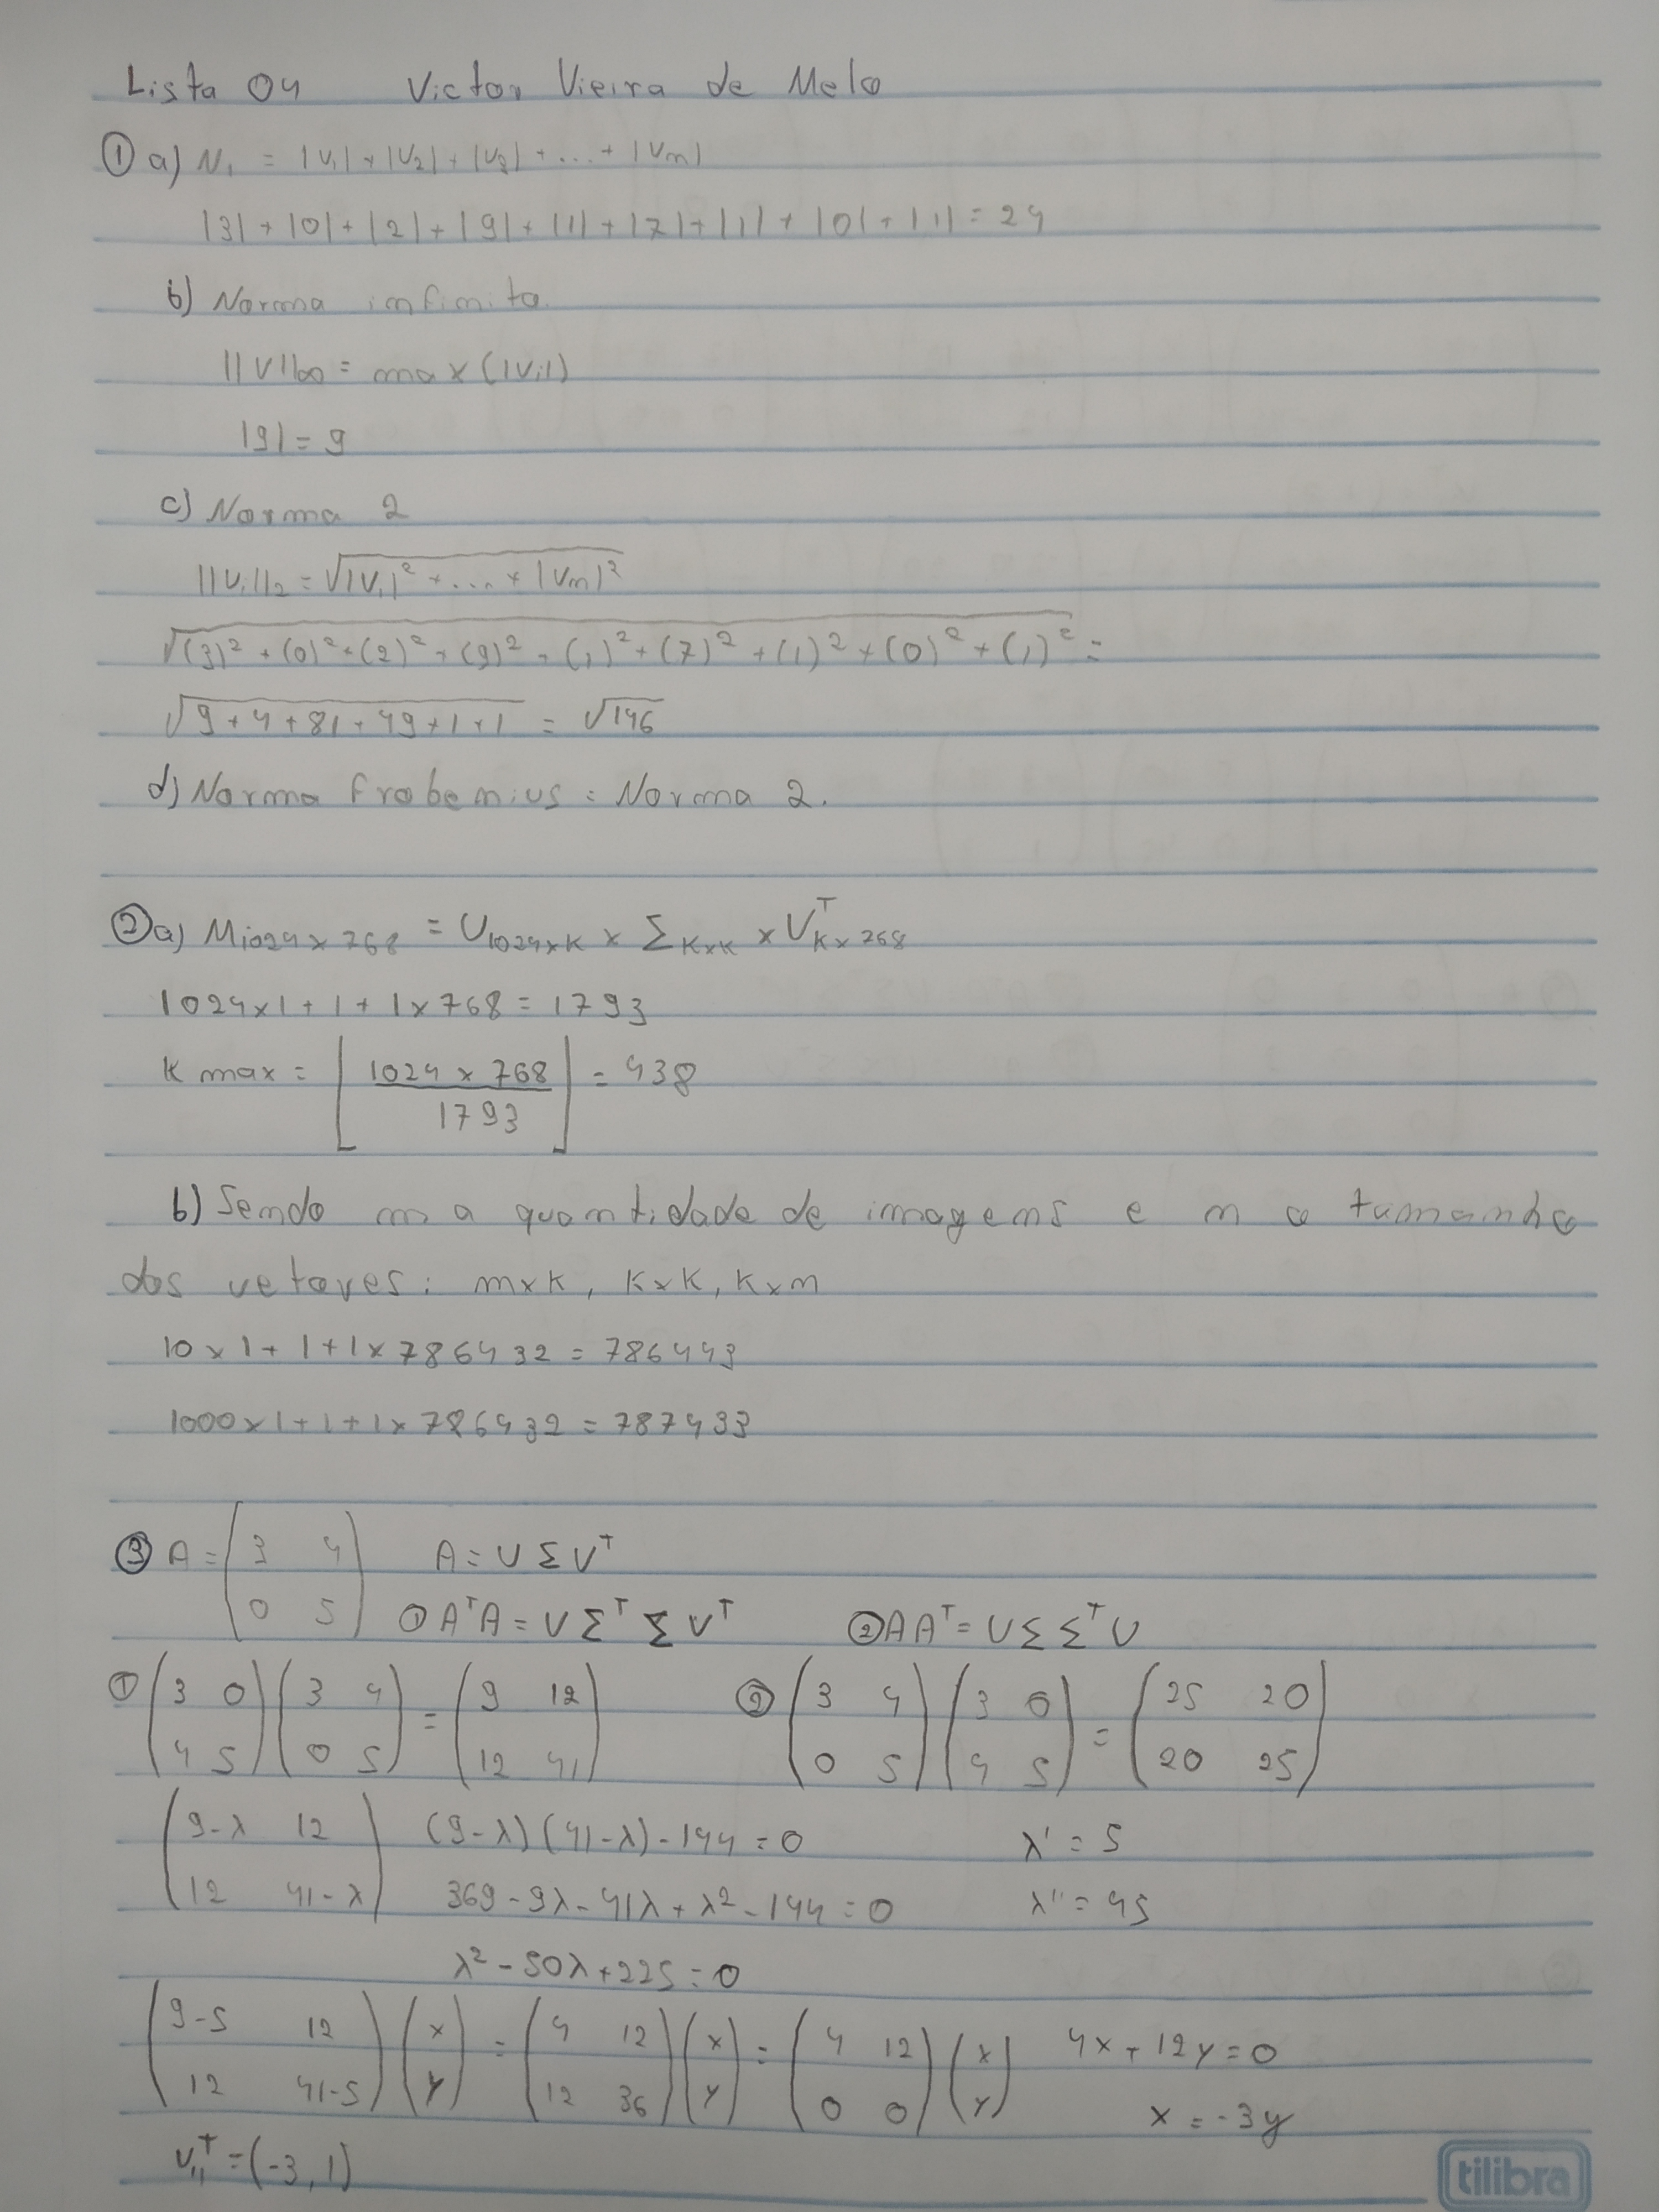 Lista 04 Victor Vieira de Melo
① a) N₁ = |V₁| + |V₂| + |V₃| + ... + |Vn|
|3| + |0| + |2| + |9| + |1| + |7| + |1| + |0| + |1| = 24
b) Norma infinita
||V||∞ = max (|Vi|)
|9| = 9
c) Norma 2
||Vi||₂ = √|V₁|² + ... + |Vn|²
√(3)² + (0)² + (2)² + (9)² + (1)² + (7)² + (1)² + (0)² + (1)² =
√9 + 4 + 81 + 49 + 1 + 1 = √146
d) Norma Frobenius = Norma 2.
② a) M1024 x 768 = U1024xK x ΣKxK x V^T Kx768
1024x1 + 1 + 1x768 = 1793
K max = ⌊ 1024 x 768 / 1793 ⌋ = 438
b) Sendo m a quantidade de imagens e n o tamanho
dos vetores: mxK, KxK, Kxn
10 x 1 + 1 + 1 x 786432 = 786443
1000 x 1 + 1 + 1 x 786432 = 787433
③ A = (3 4; 0 5) A = U Σ V^T
① A^T A = V Σ^T Σ V^T ② A A^T = U Σ Σ^T U
① (3 0; 4 5) (3 4; 0 5) = (9 12; 12 41) ② (3 4; 0 5) (3 0; 4 5) = (25 20; 20 25)
(9-λ 12; 12 41-λ) (9-λ)(41-λ) - 144 = 0 λ' = 5
369 - 9λ - 41λ + λ² - 144 = 0 λ'' = 45
λ² - 50λ + 225 = 0
(9-5 12; 12 41-5) (x; y) = (4 12; 12 36) (x; y) = (4 12; 0 0) (x; y) 4x + 12y = 0
x = -3y
V₁₁^T = (-3, 1)
tilibra